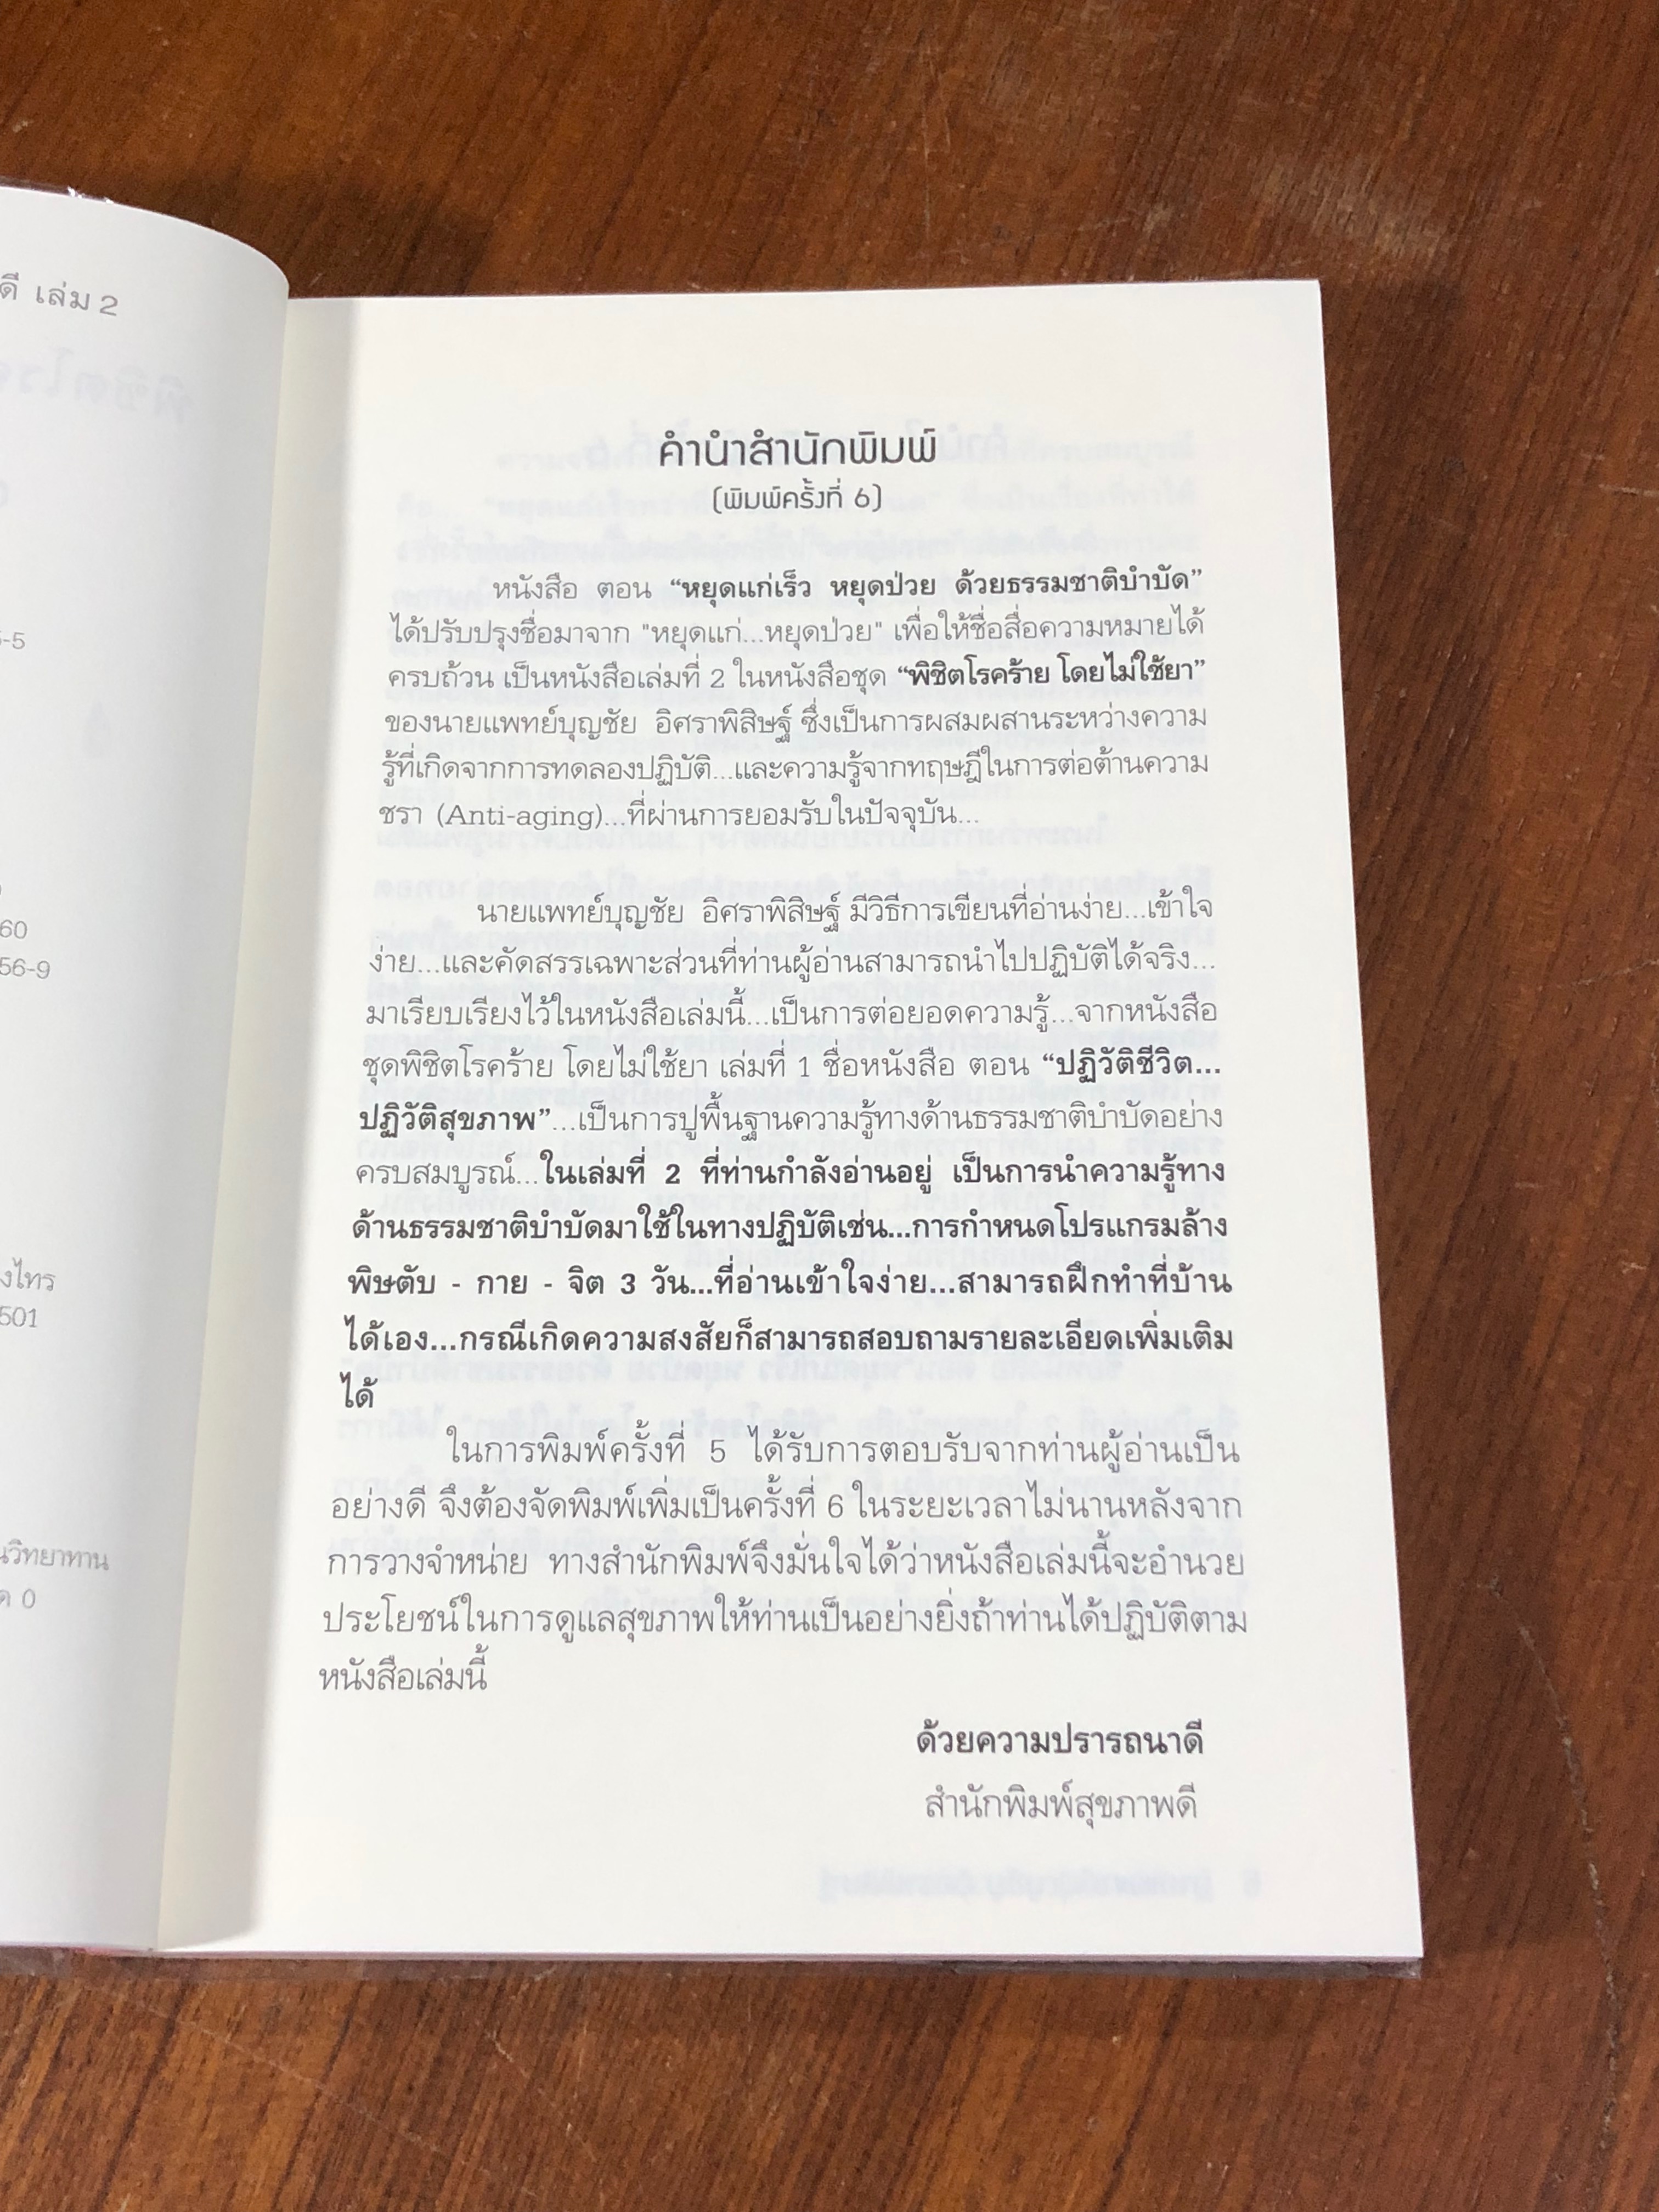 ดี เล่ม 2
5-5
60
56-9
งไทร
501
นวิทยาทาน
ด 0
คำนำสำนักพิมพ์
(พิมพ์ครั้งที่ 6)
หนังสือ ตอน “หยุดแก่เร็ว หยุดป่วย ด้วยธรรมชาติบำบัด”
ได้ปรับปรุงชื่อมาจาก "หยุดแก่...หยุดป่วย" เพื่อให้ชื่อสื่อความหมายได้
ครบถ้วน เป็นหนังสือเล่มที่ 2 ในหนังสือชุด “พิชิตโรคร้าย โดยไม่ใช้ยา”
ของนายแพทย์บุญชัย อิศราพิสิษฐ์ ซึ่งเป็นการผสมผสานระหว่างความ
รู้ที่เกิดจากการทดลองปฏิบัติ...และความรู้จากทฤษฎีในการต่อต้านความ
ชรา (Anti-aging)...ที่ผ่านการยอมรับในปัจจุบัน...
นายแพทย์บุญชัย อิศราพิสิษฐ์ มีวิธีการเขียนที่อ่านง่าย...เข้าใจ
ง่าย...และคัดสรรเฉพาะส่วนที่ท่านผู้อ่านสามารถนำไปปฏิบัติได้จริง...
มาเรียบเรียงไว้ในหนังสือเล่มนี้...เป็นการต่อยอดความรู้...จากหนังสือ
ชุดพิชิตโรคร้าย โดยไม่ใช้ยา เล่มที่ 1 ชื่อหนังสือ ตอน “ปฏิวัติชีวิต...
ปฏิวัติสุขภาพ”...เป็นการปูพื้นฐานความรู้ทางด้านธรรมชาติบำบัดอย่าง
ครบสมบูรณ์...ในเล่มที่ 2 ที่ท่านกำลังอ่านอยู่ เป็นการนำความรู้ทาง
ด้านธรรมชาติบำบัดมาใช้ในทางปฏิบัติเช่น...การกำหนดโปรแกรมล้าง
พิษตับ - กาย - จิต 3 วัน...ที่อ่านเข้าใจง่าย...สามารถฝึกทำที่บ้าน
ได้เอง...กรณีเกิดความสงสัยก็สามารถสอบถามรายละเอียดเพิ่มเติม
ได้
ในการพิมพ์ครั้งที่ 5 ได้รับการตอบรับจากท่านผู้อ่านเป็น
อย่างดี จึงต้องจัดพิมพ์เพิ่มเป็นครั้งที่ 6 ในระยะเวลาไม่นานหลังจาก
การวางจำหน่าย ทางสำนักพิมพ์จึงมั่นใจได้ว่าหนังสือเล่มนี้จะอำนวย
ประโยชน์ในการดูแลสุขภาพให้ท่านเป็นอย่างยิ่งถ้าท่านได้ปฏิบัติตาม
หนังสือเล่มนี้
ด้วยความปรารถนาดี
สำนักพิมพ์สุขภาพดี